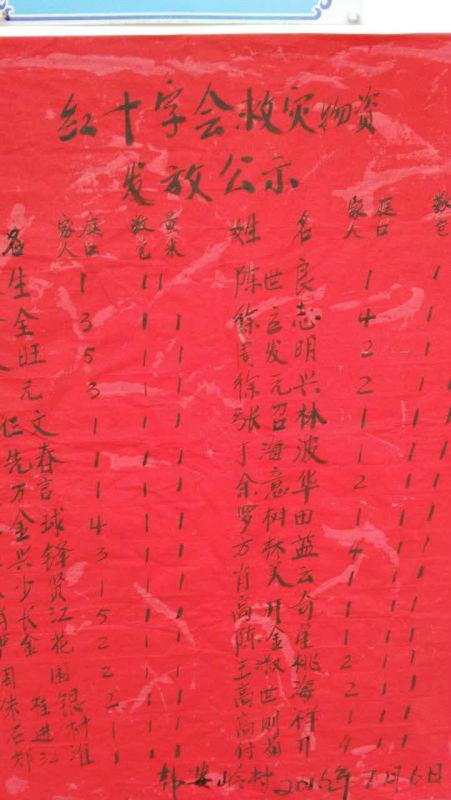 红十字会救灾物资
发放公示
名 家庭人口 姓名 家庭人口
生 1 1 1 陈世良 1 1
全 3 1 1 徐立志 4 1
旺 5 1 1 周发明 2 1
元 3 1 1 徐元兴 2 1
文 1 1 1 张召林 1 1 1
先春 1 1 1 丁海波 1 1 1
万言 1 1 1 余意华 2 1 1
金球 4 1 1 罗树田 1 1 1
兴锋 3 1 1 方林 4 1 1
少贤 1 1 1 肖美云 1 1 1
长江 5 1 1 高开 1 1 1
金花 2 1 1 陈金星 1 1 1
周围 2 1 1 王淑桃 2 1 1
朱桂银 2 1 1 高世海 2 1 1
石进树 1 1 1 高明祥 1 1 1
郑江淮 1 1 1 付相 4 1 1
韩婆岭村 2016年1月6日